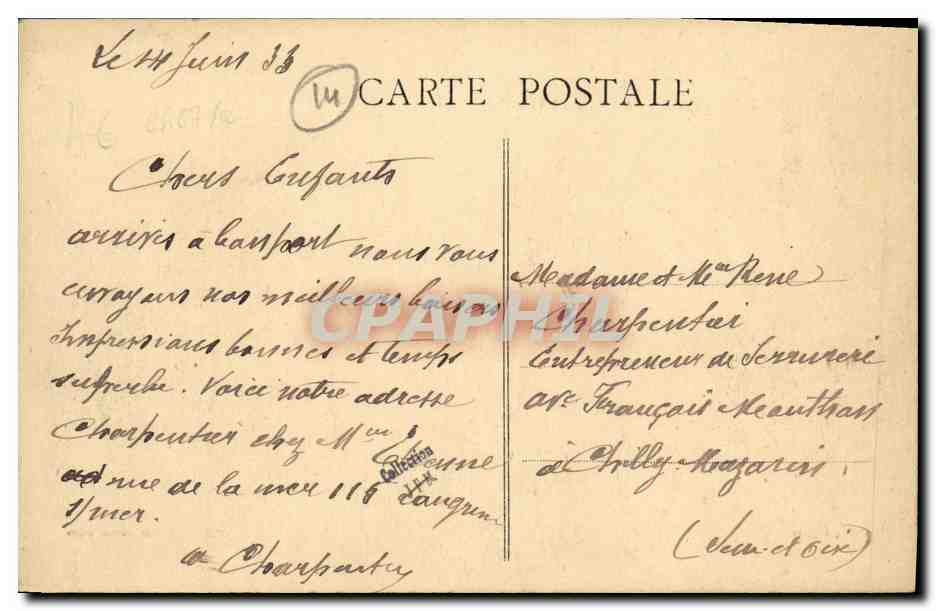 Le 14 Juin 33
CARTE POSTALE
Chers Enfants
arrivés à bon port nous vous
envoyons nos meilleurs baisers
Impressions bonnes et temps
superbe. Voici notre adresse
Charpentier chez Mme
rue de la mer 116
s/mer.
Charpentier
Madame et Mr René
Charpentier
Entrepreneur de Serrurerie
ave François
à Chilly-Mazarin
(Seine-et-Oise)
Collection
CPAPHIL